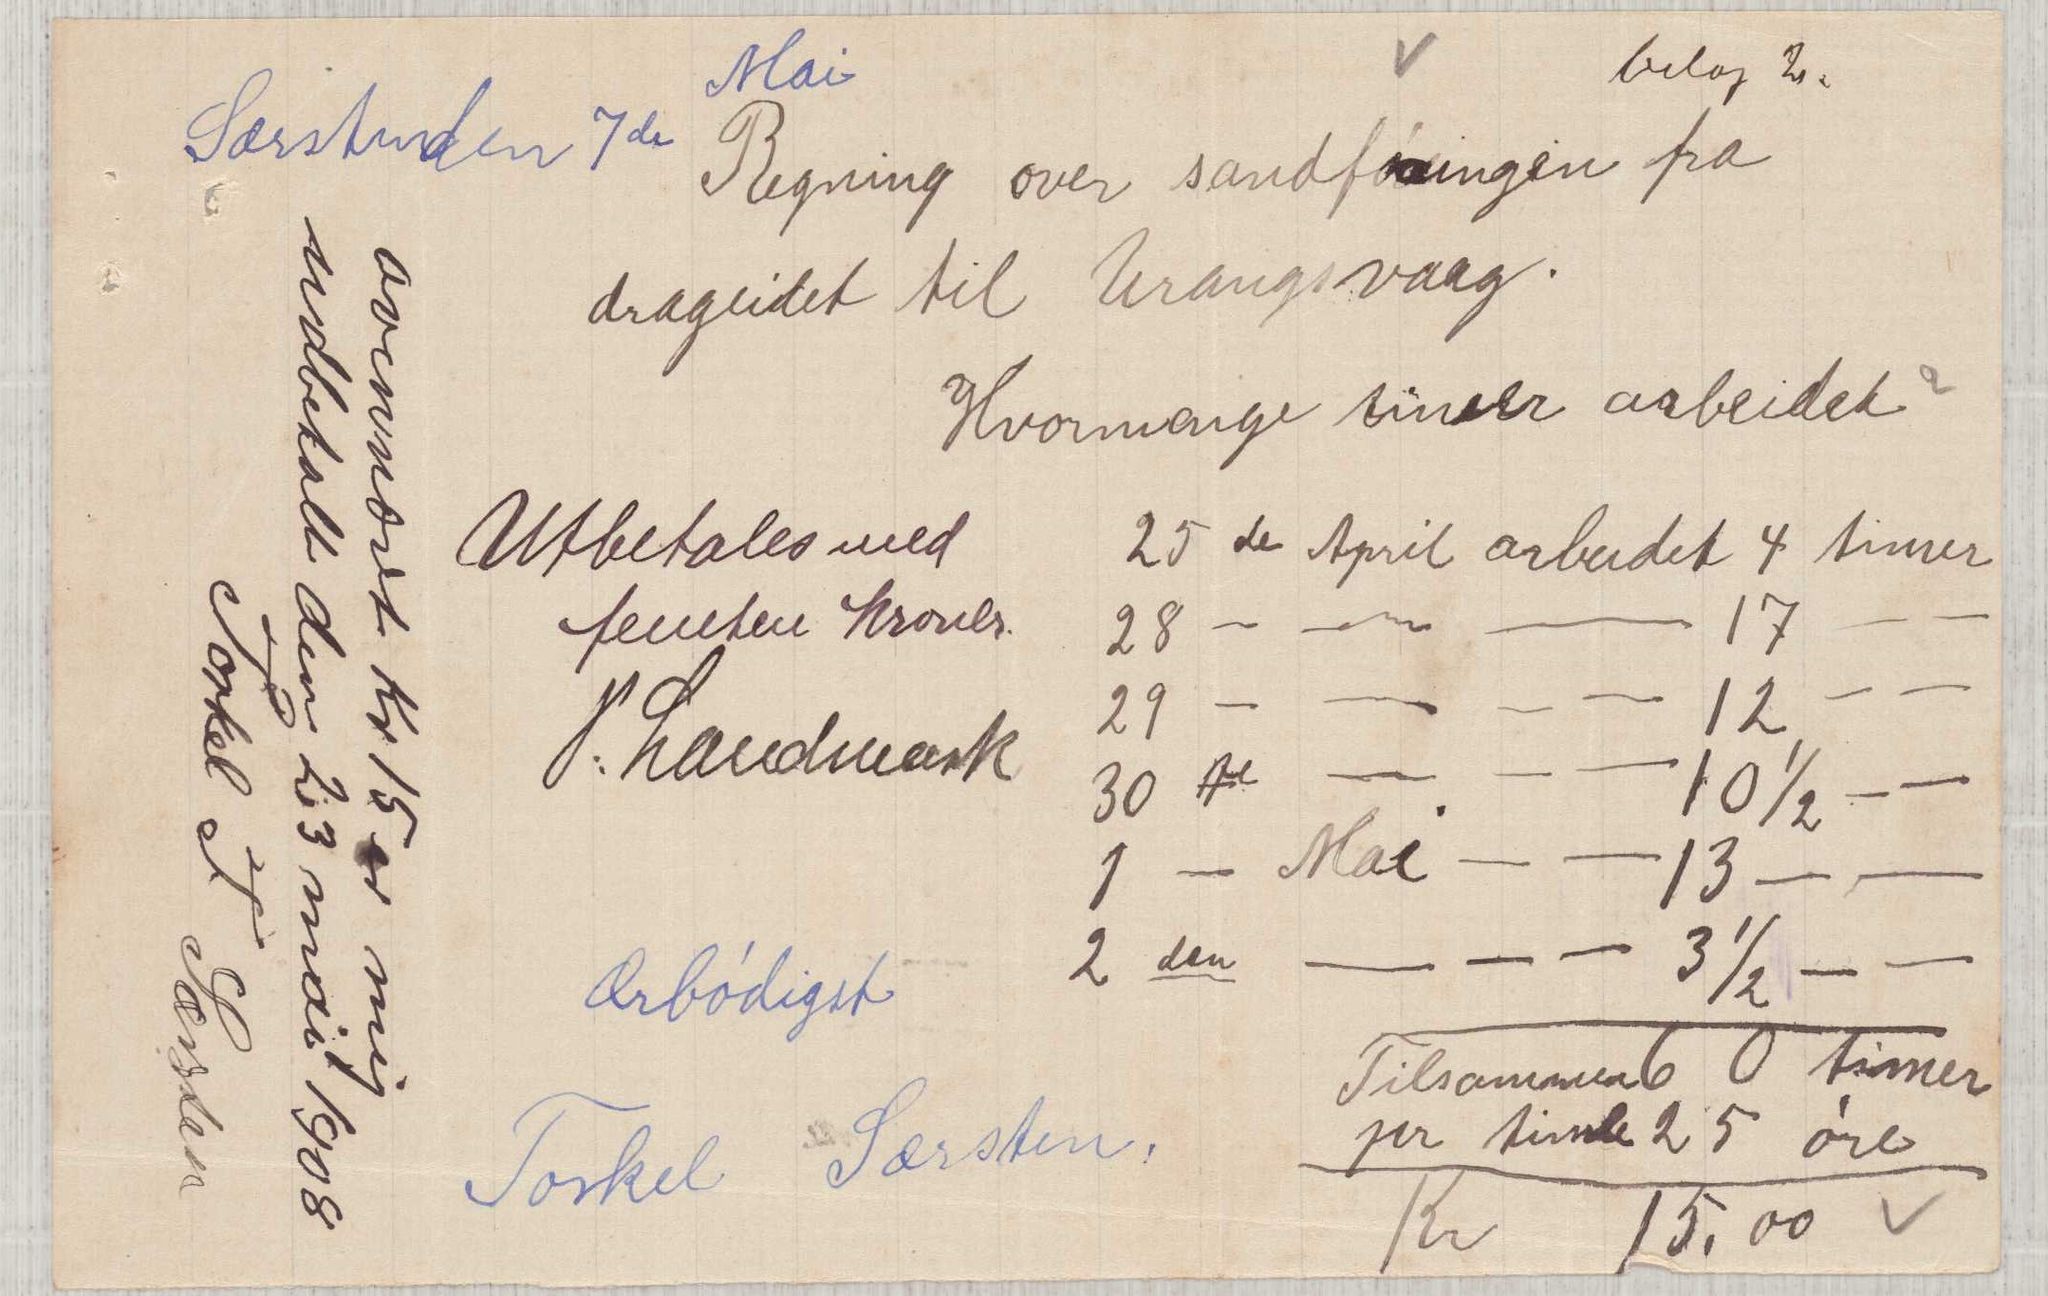 Særstenden 7de Mai
belag 2.
Regning over sandføringen fra
drageidet til Vrangsvaag.
Hvormange timer arbeidet
Utbetales med
femten kroner.
P. Landmark
25 de April arbeidet 4 timer
28 — — — 17 — —
29 — — — — 12 — —
30 te — — — 10 1/2 — —
1 — Mai — — 13 — —
2 den — — — 3 1/2 — —
Tilsammen 60 timer
pr time 25 öre
Kr 15,00
Ærbödigst
Torkel Særsten.
ovennævt kr 15 er mig
udbetalt den 23 mai 1908
Torkel T Særsten